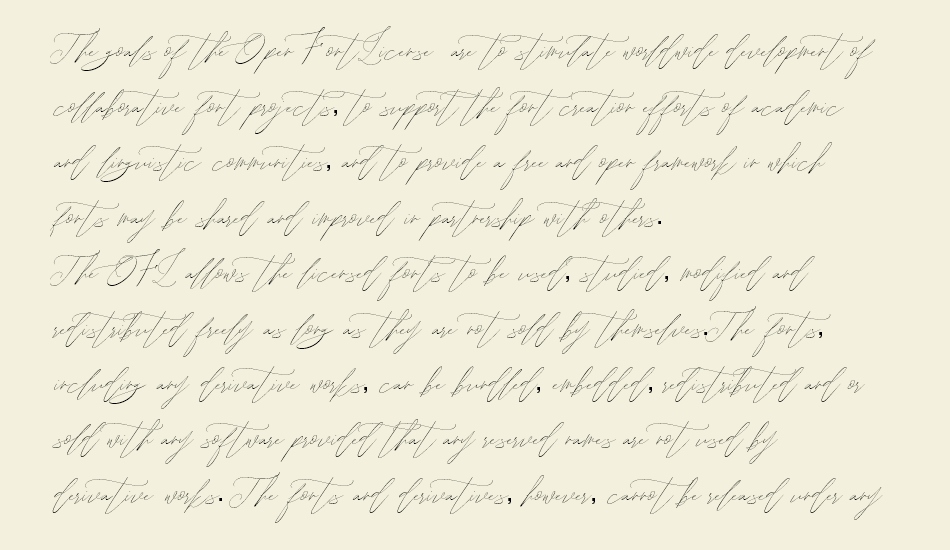 The goals of the Open Font License are to stimulate worldwide development of
collaborative font projects, to support the font creation efforts of academic
and linguistic communities, and to provide a free and open framework in which
fonts may be shared and improved in partnership with others.
The OFL allows the licensed fonts to be used, studied, modified and
redistributed freely as long as they are not sold by themselves.The fonts,
including any derivative works, can be bundled, embedded, redistributed and or
sold with any software provided that any reserved names are not used by
derivative works. The fonts and derivatives, however, cannot be released under any